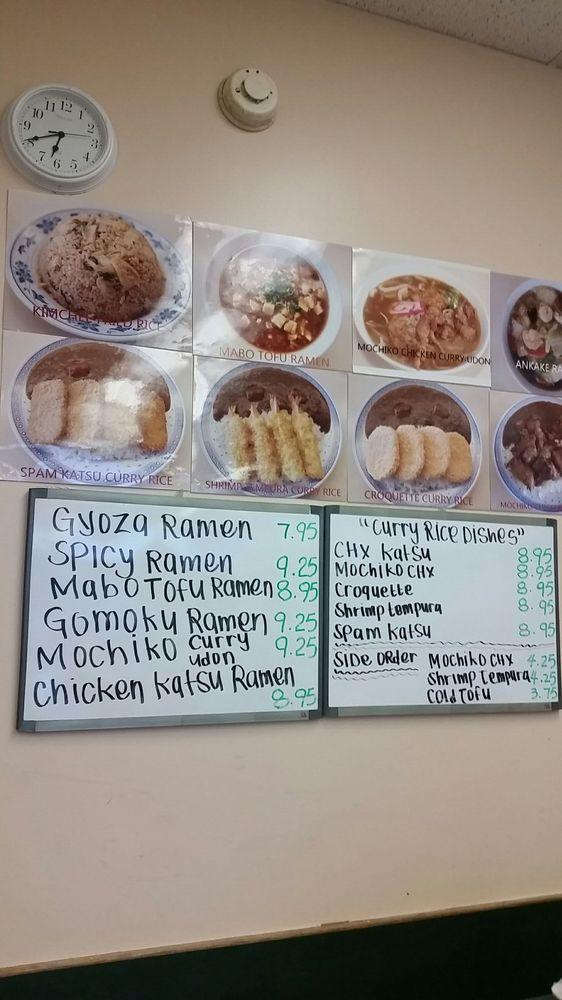 12
11 1
10 2
9 3
8 4
7 6 5
KIMCHEE FRIED RICE
MABO TOFU RAMEN
MOCHIKO CHICKEN CURRY UDON
ANKAKE RA
SPAM KATSU CURRY RICE
SHRIMP TEMPURA CURRY RICE
CROQUETTE CURRY RICE
MOCHIKO
Gyoza Ramen 7.95
SPICY Ramen 9.25
Mabo Tofu Ramen 8.95
Gomoku Ramen 9.25
Mochiko Curry udon 9.25
Chicken Katsu Ramen
8.95
"Curry Rice Dishes"
CHX Katsu 8.95
Mochiko CHX 8.95
Croquette 8.95
Shrimp tempura 8.95
Spam Katsu 8.95
Side Order Mochiko CHX 4.25
Shrimp tempura 4.25
Cold Tofu 3.75